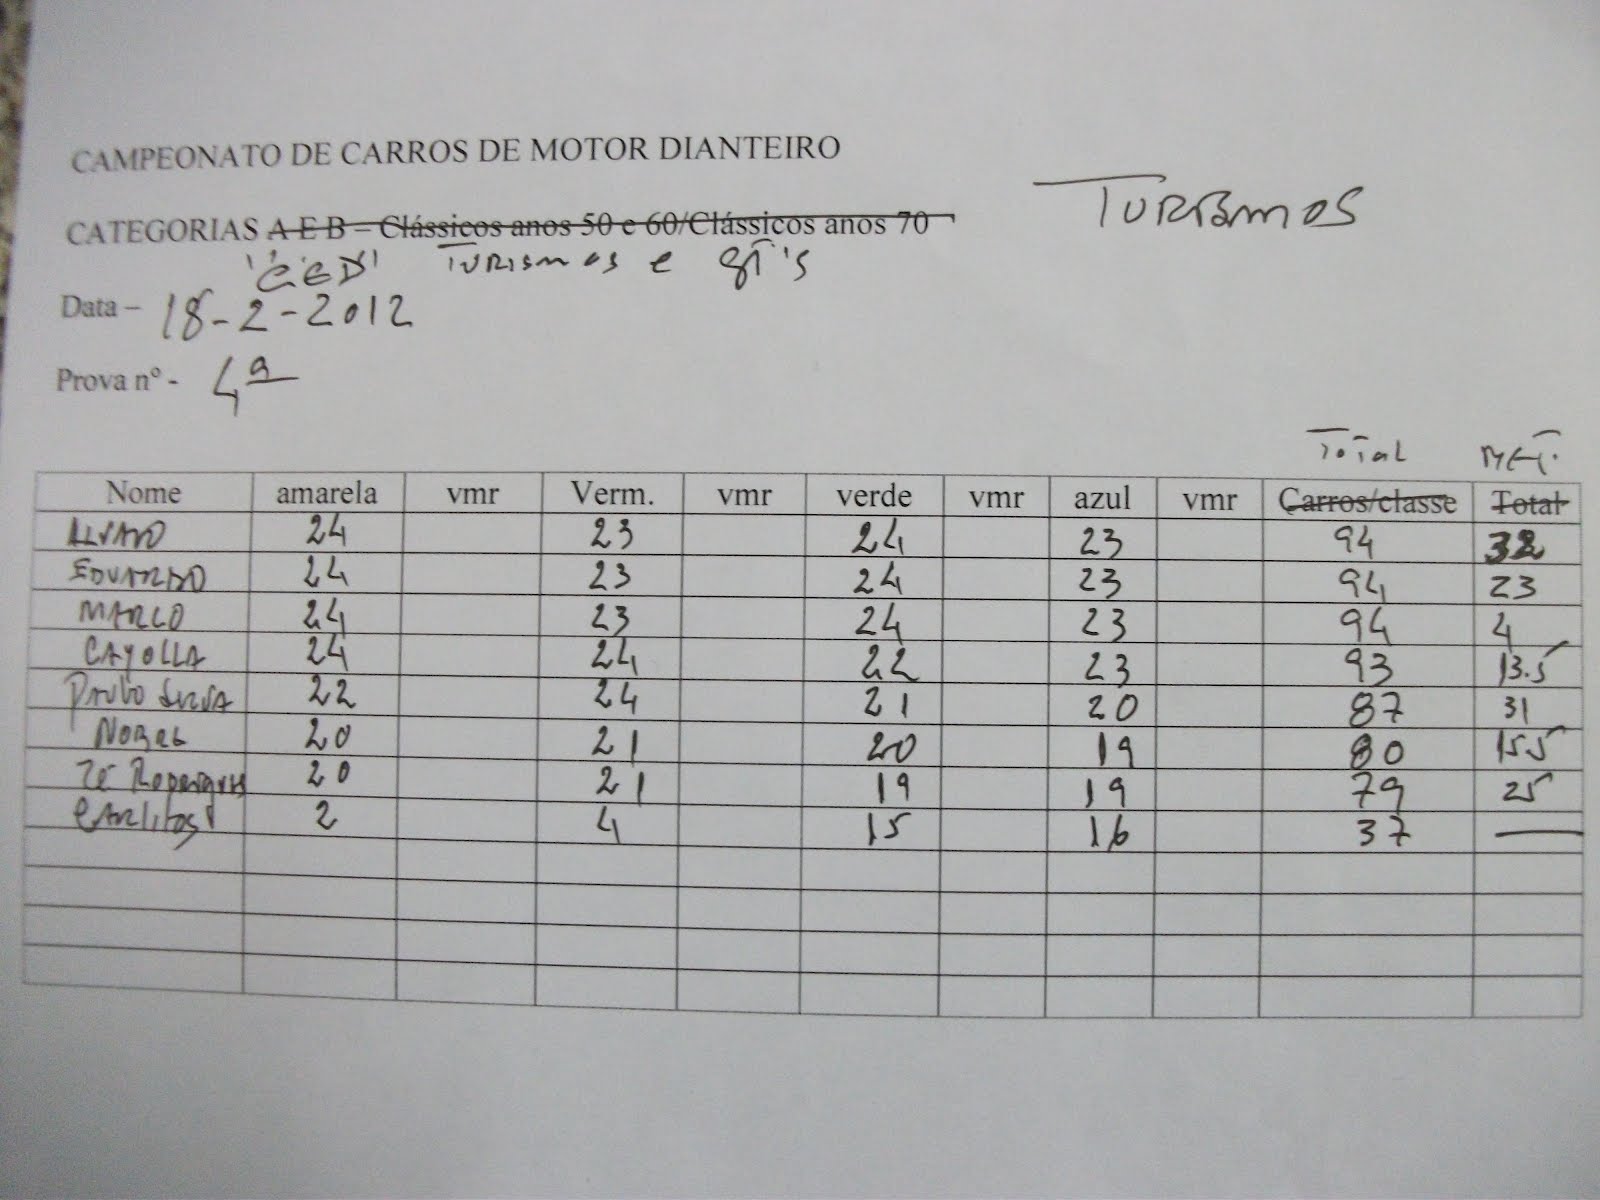 CAMPEONATO DE CARROS DE MOTOR DIANTEIRO
TURISMOS
CATEGORIAS A E B – Clássicos anos 50 e 60/Clássicos anos 70
"C E D" TURISMOS e GT's
Data – 18-2-2012
Prova nº - 4ª
TOTAL MET.
Nome amarela vmr Verm. vmr verde vmr azul vmr Carros/classe Total
ALVARO 24 23 24 23 94 32
EDUARDO 24 23 24 23 94 23
MARCO 24 23 24 23 94 4
CAYOLLA 24 24 22 23 93 13.5
PAULO 22 24 21 20 87 31
NOBRE 20 21 20 19 80 15.5
Zé Rodrigues 20 21 19 19 79 25
CARLITOS 2 4 15 16 37 —